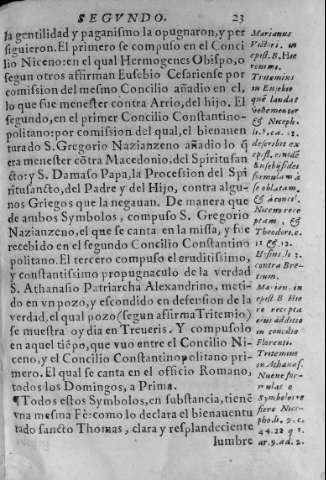 SEGVNDO. 23
la gentilidad y paganismo la opugnaron, y per
siguieron. El primero se compuso en el Conci
lio Niceno: en el qual Hermogenes Obispo, o
segun otros affirman Eusebio Cesariense por
comission del mesmo Concilio añadio en el,
lo que fue menester contra Arrio, del hijo. El
segundo, en el primer Concilio Constantino-
politano: por comission del qual, el bienauen
turado S. Gregorio Nazianzeno añadio lo q̃
era menester cõtra Macedonio, del Spiritusan
cto: y S. Damaso Papa, la Procession del Spi
ritusancto, del Padre y del Hijo, contra algu-
nos Griegos que la negauan. De manera que
de ambos Symbolos, compuso S. Gregorio
Nazianzeno, el que se canta en la missa, y fue
recebido en el segundo Concilio Constantino
politano. El tercero compuso el eruditissimo,
y constantissimo propugnaculo de la verdad
S. Athanasio Patriarcha Alexandrino, meti-
do en vn pozo, y escondido en defension de la
verdad, el qual pozo (segun affirma Tritemio)
se muestra oy dia en Treueris. Y compusolo
en aquel tiẽpo, que vuo entre el Concilio Ni-
ceno, y el Concilio Constantinopolitano pri-
mero. El qual se canta en el officio Romano,
todos los Domingos, a Prima.
¶ Todos estos Symbolos, en substancia, tienẽ
vna mesma Fè: como lo declara el bienauentu
rado sancto Thomas, clara y resplandeciente
lumbre
Marianus
Victori. in
epist. B. Hie
ronimi.
Tritemius
in Eusebio
quẽ laudat
& Niceph.
epist. eiusdẽ
formulam à
se oblatam,
Nicem rece
ptam, &
Theodore. e.
11 & 12.
contra Bre-
Marian. in
epist. B. Hie
ro recepta
in concilio
Florenti.
Tritemius
in Athanas.
Nuene for-
mulas e
Symbolo re
fiere Nice-
pho. li. 9. c.
44. 22 q 1.
ar. 9. ad. 2.